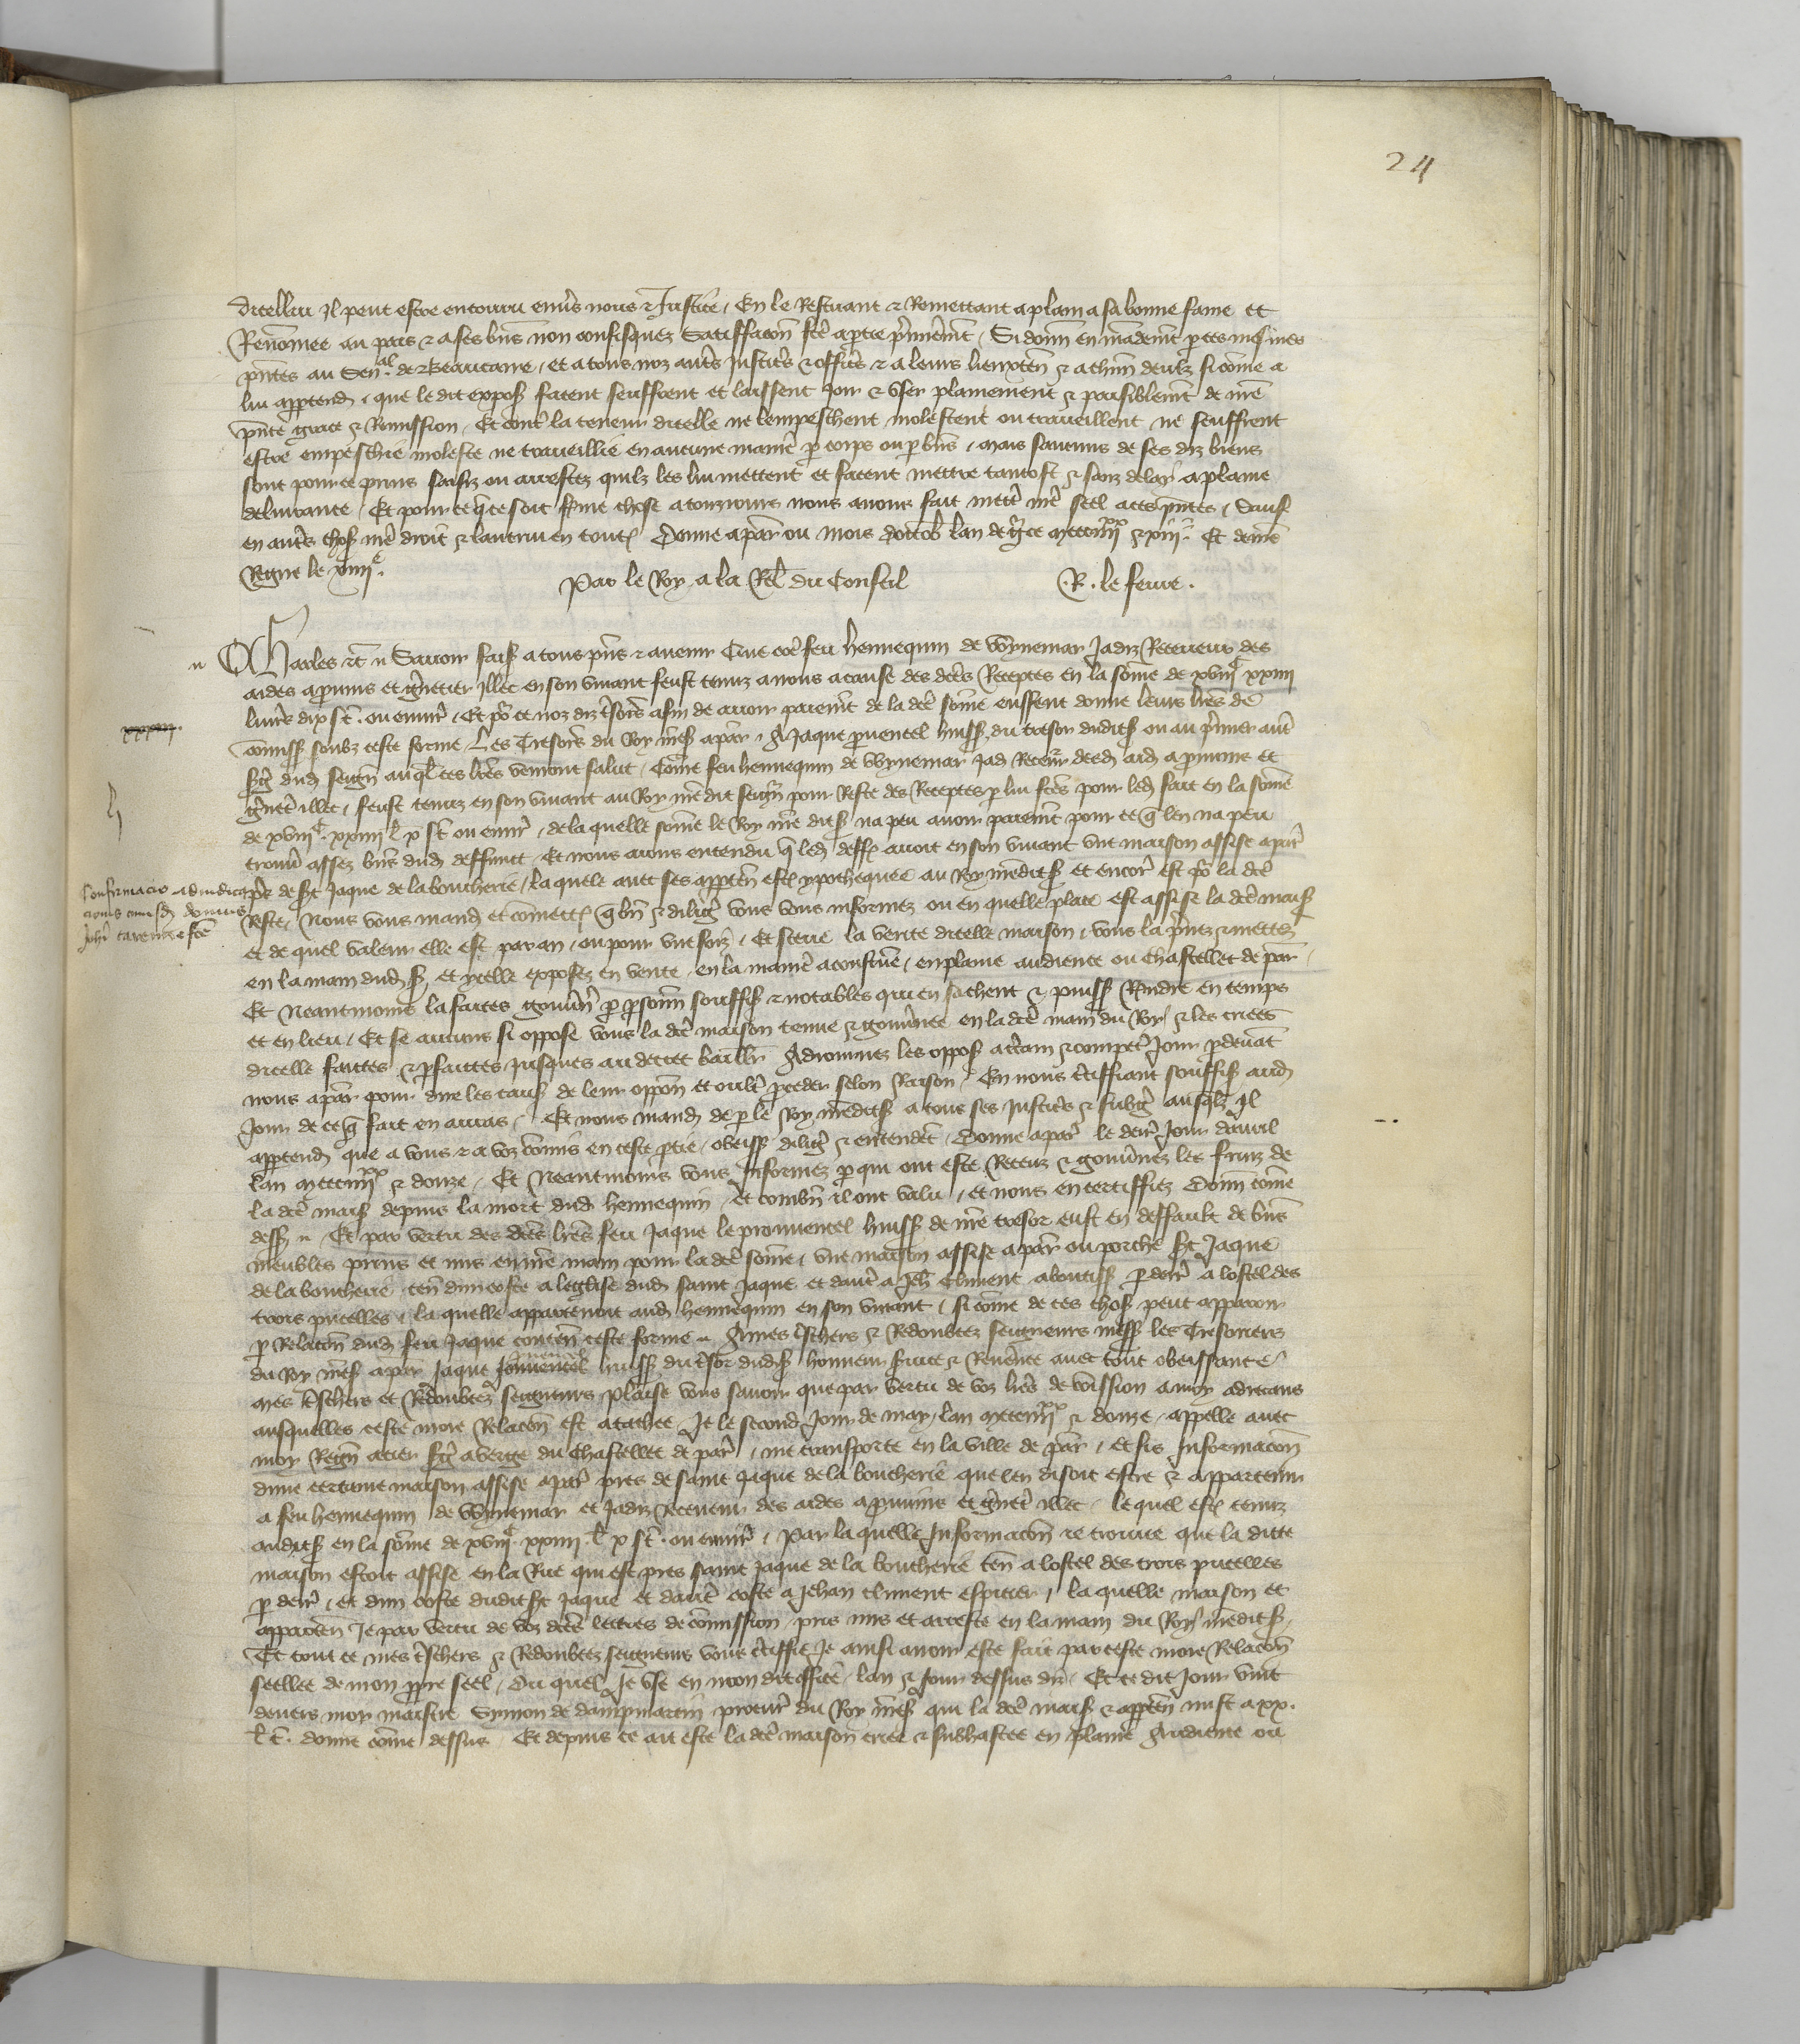 24
dicellui il peut estre encouru enuers nous & Justice / En le Restituant & Remettant a plain a sa bonne fame et
Renommee au pais & a ses biens non confisquez Satisfacon fce a partie premierement / Si donn en mandement par ces mesmes
pntes au Senal de Beaucaire / et a tous noz autres Justiciers & officiers & a leurs lieuxten & a chun deulz si comme a
lui apptendra / que le dit expos facent seuffrent et laissent Joir & vser plainement & paisiblement de nre
pnte grace & Remission / Et contre la teneur dicelle ne lempeschent molestent ou traueillent ne seuffrent
estre empeschie moleste ne traueillie en aucune maniere par corps ou par biens / mais saucuns de ses diz biens
sont pour ce prins saisiz ou arrestez quilz les lui mettent et facent mettre tantost & sanz delay a plaine
deliurance / Et pour ce que ce soit ferme chose a tousiours nous auons fait mettre nre seel a ces pntes / Sauf
en autres choses nre droit & lautrui en toutes Donne a paris ou mois doctobre lan de grace mil ccc iiiixx & xiii. Et de nre
Regne le xiiiie.
Par le Roy a la Rel du Conseil R. le feure.
Charles etc Sauoir fais a tous pns & auenir Que come feu hennequin de Wynemar Jadiz Receueur des
aides a prouuins et grenetier illec en son viuant feust tenuz a nous a cause des dces Receptes en la somme de xviiic xxiiii
liures dix s t. ou enuir / Et pour ce noz diz tresoriers afin de auoir paiement de la dce somme eussent donne leurs lres de
xxxiii.
commission soubz ceste forme Les Tresoriers du Roy nre s a paris / A Jaque prouentel huiss du tresor dudit s ou au premier autre
sergent dud seign auquel ces lres vendront salut / Comme feu hennequin de Wynemar Jad Receueur desd aid a prouuins et
grenetier illec / feust tenuz en son viuant au Roy nredit seign pour Reste des Receptes par lui fces pour led fait en la somme
de xviiic. xxiiii l x s t ou enuir / de la quelle somme le Roy nre dit s na peu auoir paiement pour ce que len na peu
trouuer assez biens dud deffunct / Et nous auons entendu que led deff auoit en son viuant vne maison assise a paris
Confirmacio adiudica
cionis eiusdem domus
Johi tarenne fce
pres de st Jaque de la boucherie / la quele auec ses apparten est ypothequee au Roy nredit s et encore est pour la dce
Reste / Nous vous mand et commett que bien & diligemment vous vous informez ou en quelle place est assise la dce maison
et de quel valeur elle est par an / ou pour vne foiz / Et sceue la verite dicelle maison / vous la prenez & mettez
en la main dud s / et ycelle exposez en vente / en la maniere acoustumee / en plaine audience ou Chastellet de paris /
Et Neantmoins la faites gouuerner par personnes souffis & notables qui en sachent & puissent Rendre en temps
et en lieu / Et se aucuns si oppose vous la dce maison tenue & gouuernee en la dce main du Roy / & les criees
dicelle faictes & parfaictes Jusques au decret bailler Adiournez les oppos a certain & competent Jour pardeuant
nous a paris pour dire les causes de leur opposicion et oultre proceder selon Raison / En nous certiffiant souffis aud
Jour de ce que fait en auras / Et nous mand de par le Roy nredit s a tous ses Justiciers & subgiez ausquelz Il
apptendra que a vous & a voz commis en ceste partie / obeissent diligemment & entendent / Donne a paris le derrenier Jour dauril
lan mil ccc iiiixx & douze / Et Neantmoins vous Informez par qui ont este Receuz & gouuernez les fruiz de
la dce maison depuis la mort dud hennequin / et combien il ont valu / et nous en certiffiez Donn comme
dessus / Et par vertu des dces lres feu Jaque le prouuentel huiss de nre tresor eust en deffault de biens
meubles prins et mis en nre main pour la dce somme / vne maison assise a paris ou porche st Jaque
de la boucherie / ten dun coste a leglise dud saint Jaque et dautre a Jeh Climent aboutiss par derriere a lostel des
trois pucelles / la quelle appartenoit aud hennequin en son viuant / si comme de ces choses peut apparoir
par Relacion dud feu Jaque contenant ceste forme / A mes tschers & Redoubtez seigneurs mess les Tresoriers
du Roy nre s a paris Jaque prouuentel huiss du tresor dudit s honneur seruice & Reuerence auec tout obeissance /
mes tschers et Redoubtez seigneurs plaise vous sauoir que par vertu de voz lres de commission a moy adrecans
ausquelles ceste moie Relacion est atachee Je le second Jour de may / lan mil ccc iiiixx & douze / appelle auec
moy Regn acier sergent a verge du Chastellet de paris / me transporte en la ville de paris / et fis Informacion
dune certaine maison assise a paris pres de saint Jaque de la boucherie que len disoit estre & appartenir
a feu hennequin de Wynemar et Jadiz Receueur des aides a prouuins et grenetier illec / le quel est tenuz
audit s en la somme de xviiic. xxiiii. l x s t. ou enuir / Par laquelle Informacion Je trouue que la dicte
maison estoit assise en la Rue qui est pres saint Jaque de la boucherie ten a lostel des trois pucelles
par derriere / et dun coste dudit st Jaque et dautre coste a Jehan Climent espicier / la quelle maison et
apparten Je par vertu de voz dces lectres de commission / pris mis et arreste en la main du Roy nredit s /
Et tout ce mes tschers & Redoubtez seigneurs vous certiffie Je ainsi auoir este fait par ceste moie Relacion
seellee de mon propre seel / Du quel Je vse en mon dit office / lan & Jour dessus diz / Et ce dit Jour vint
deuers moy maistre Symon de dampmartin procureur du Roy nre s qui la dce maison & apparten mist a xx.
l t. donne comme dessus / Et depuis ce ait este la dce maison criee & subhastee en plaine Audience ou